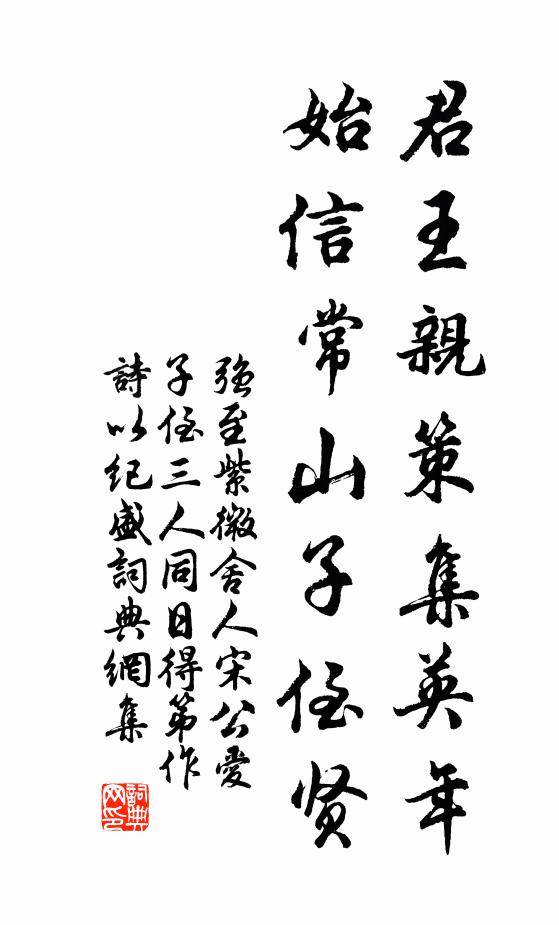 君王親策集英年
始信常山子侄贤
強至紫微舍人宋公愛
子侄三人同日得第作
詩以纪盛詞典網集
詞典网印